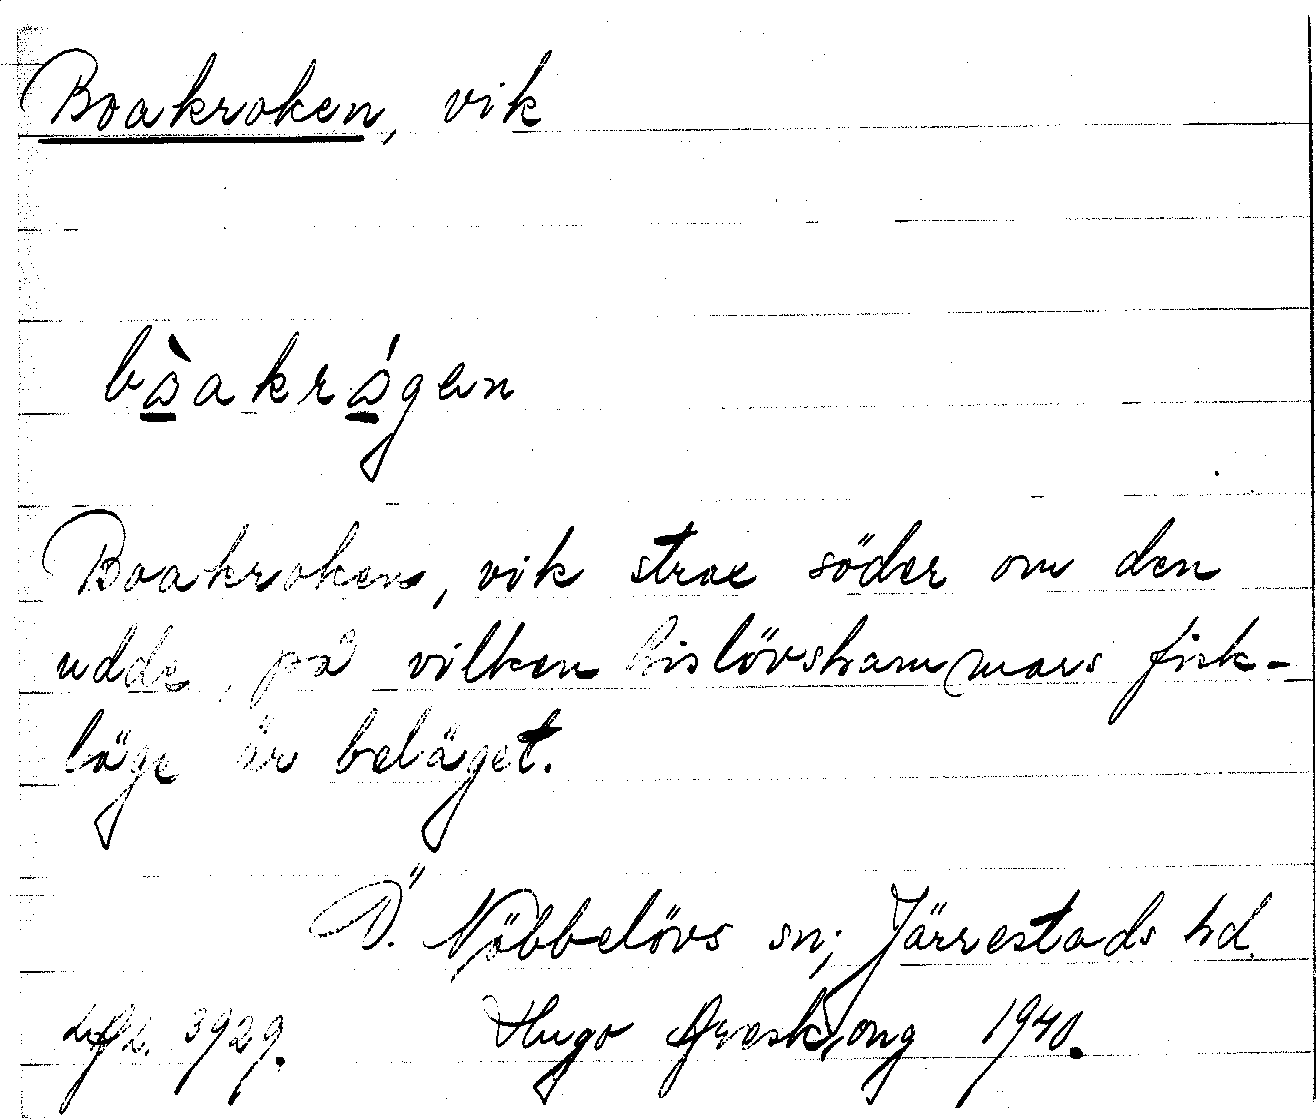 Boakroken, vik
bòakrógen
Boakroken, vik strax söder om den
udde, på vilken Gislövshammars fisk-
läge är beläget.
Ö. Nöbbelövs sn; Järrestads hd.
3929. Hugo Areskoug 1940.